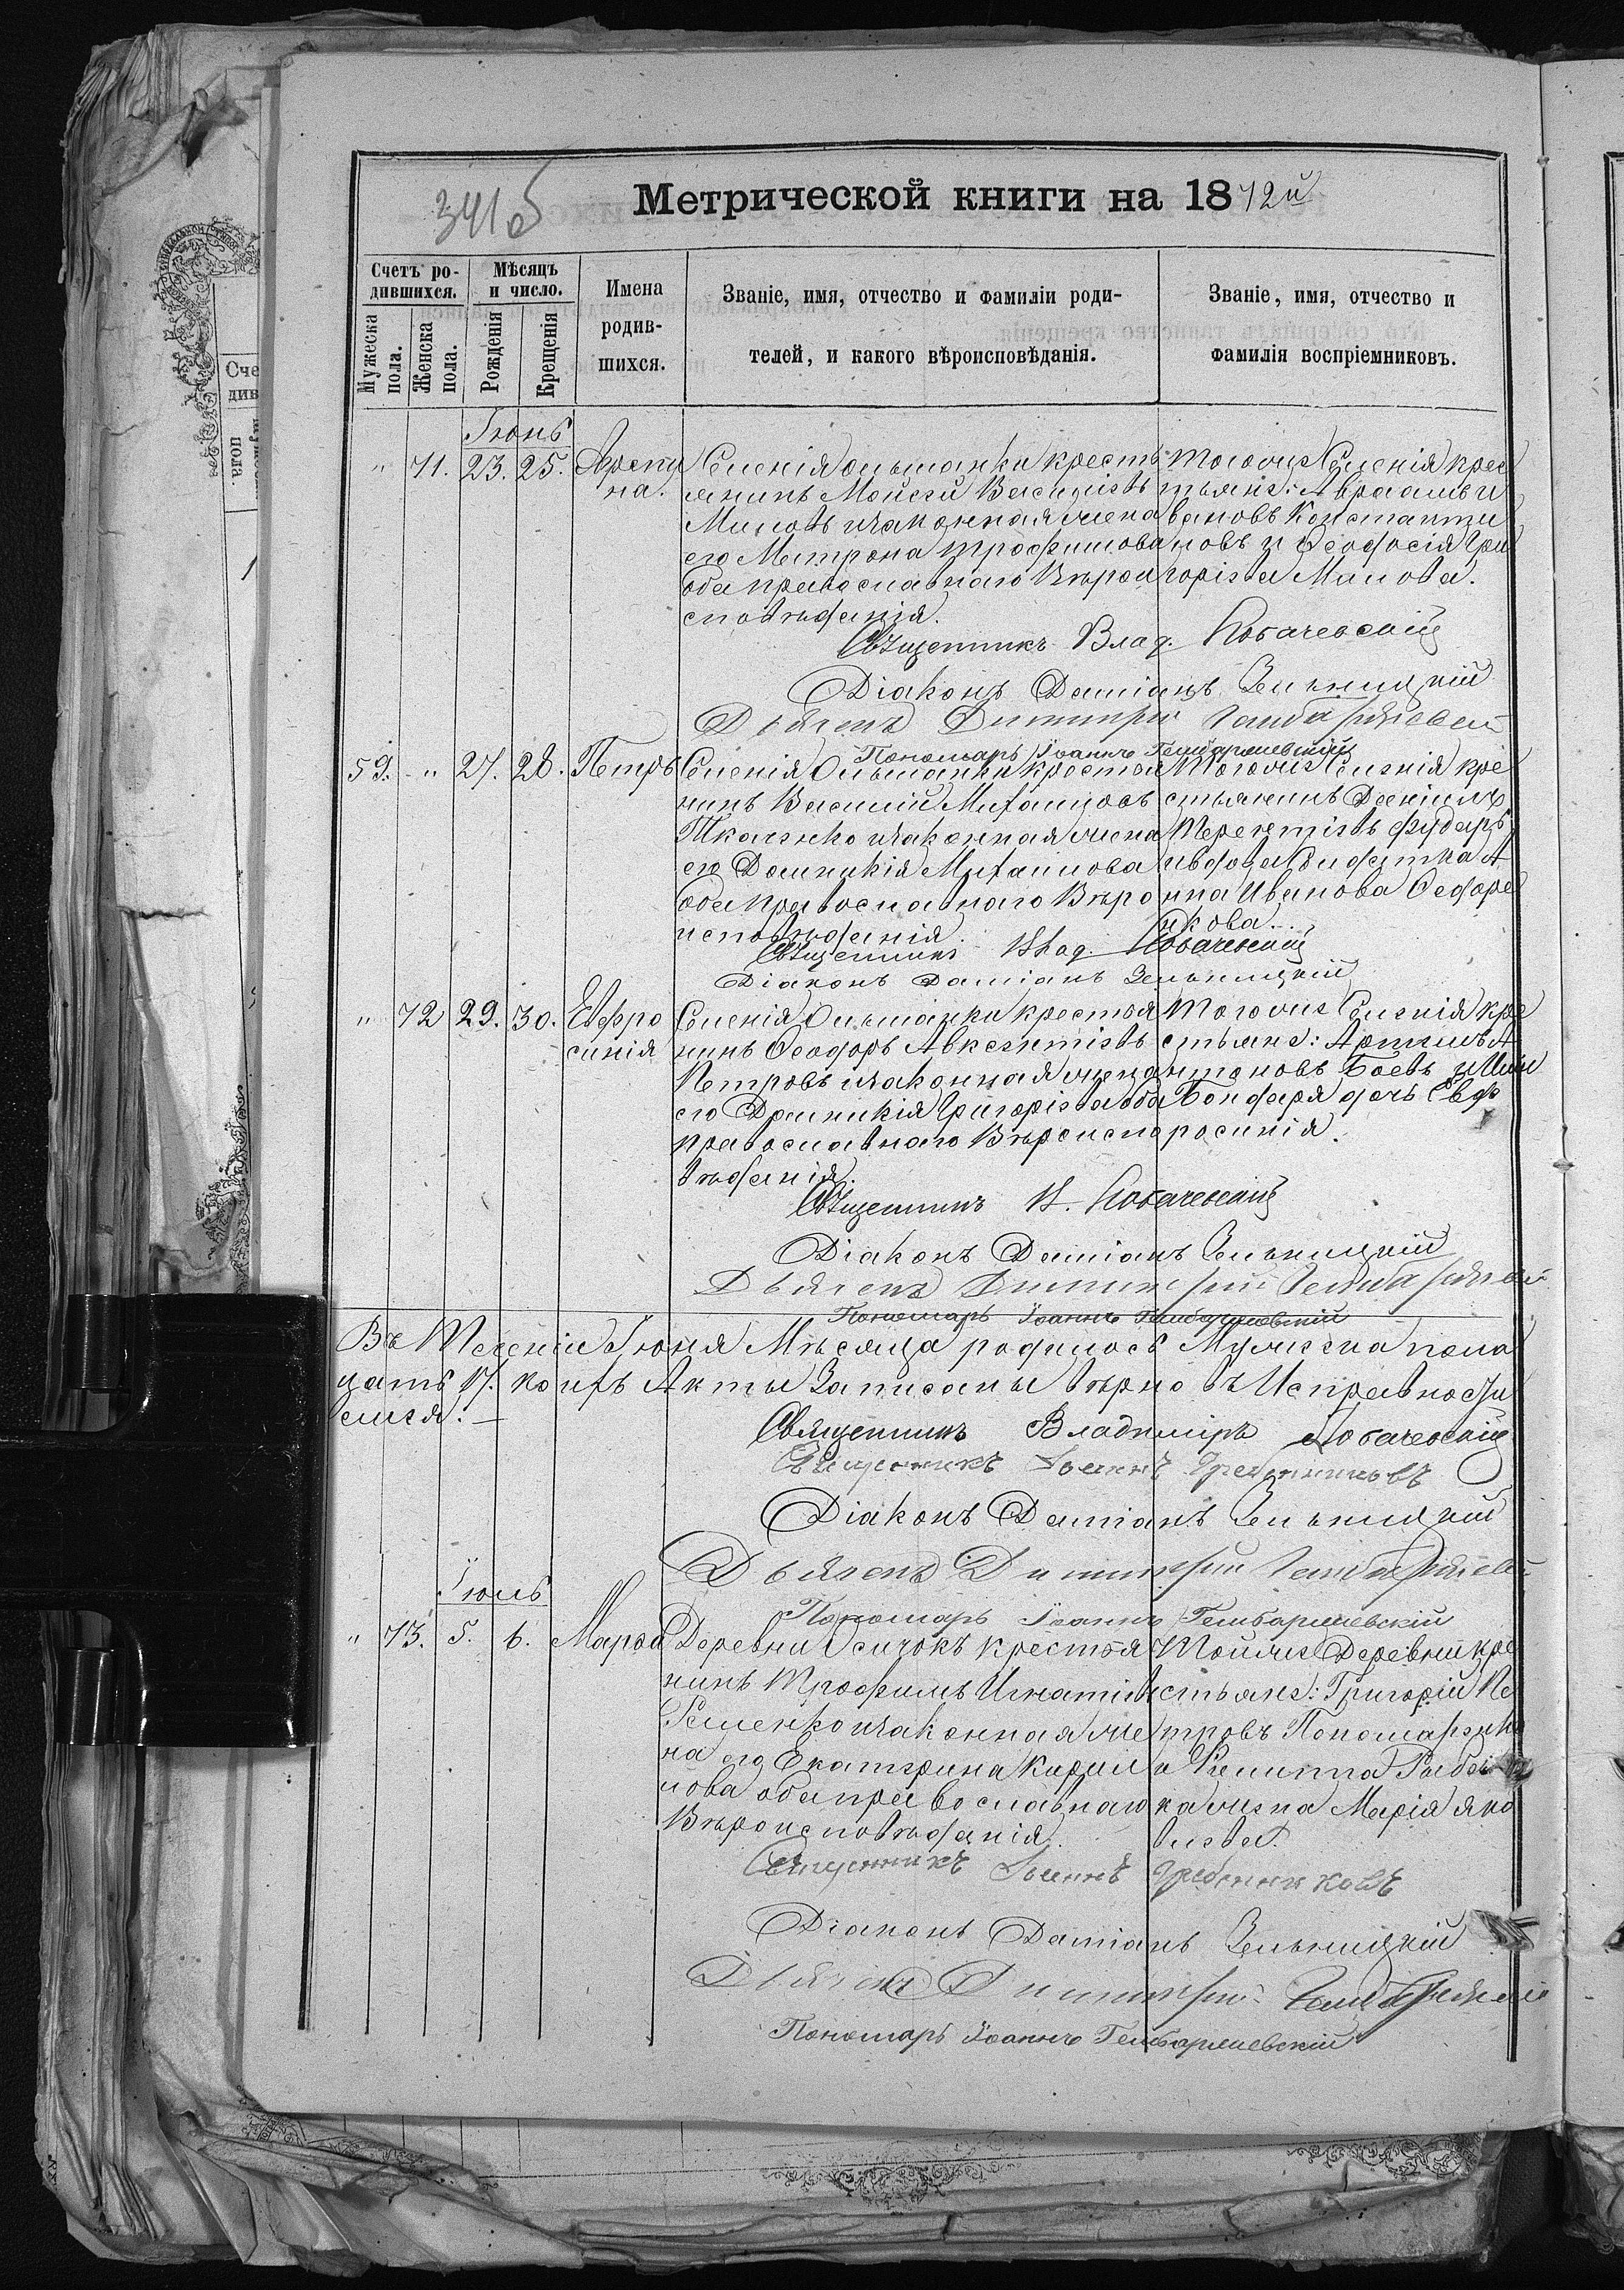 341об
Метрической книги на 1872й
Счетъ ро-
дившихся.
Мужеска
пола.
Женска
пола.
Мѣсяцъ
и число.
Рожденія
Крещенія
Имена
родив-
шихся.
Званіе, имя, отчество и фамиліи роди-
телей, и какого вѣроисповѣданія.
Званіе, имя, отчество и
фамилія воспріемниковъ.
Іюнь
" 71. 23. 25.
на.
Селенія Ольшанки кресть
янинъ Мойсей Василіевъ
и законная жена
его Матрона Трофимова
оба православнаго Вѣрои
сповѣданія.
тогоже Селенія крес
тьяне: Авраамъ И
вановъ Константи
новъ и Ѳеодосія Гри
горіева
Священникъ Влад. Лобачевскій
Діаконъ Даміанъ Зелькицкій
Дьячекъ Димитрій
Пономарь Іоаннъ Гембаржевскій
59. " 27. 28. Петръ
Селенія Ольшанки крестья
нинъ Василій Михайловъ
Ткаченко и законная жена
его Домникія Михайлова
оба Православнаго Вѣро
исповѣданія.
Тогоже Селенія кре
стьянинъ Даніилъ
Терентіевъ
и вдова Солдатка А
нна Иванова Ѳедоре
нкова.
Священникъ Влад. Лобачевскій
Діаконъ Даміанъ Зелькицкій
" 72 29. 30. Евфро
синія
Селенія Ольшанки крестья
нинъ Ѳеодоръ Авксентіевъ
Петровъ и законная жена
его Домникія Григоріева оба
православнаго Вѣроиспо
вѣданія.
Тогоже Селенія кре
стьяне: Артемъ А
нтоновъ Боевъ и
Бондаря дочь Евф
росинія.
Священникъ В. Лобачевскій
Діаконъ Даміанъ Зелькицкій
Дьячекъ Димитрій
Пономарь Іоаннъ Гембаржевскій
Въ Теченіи Іюня Мѣсяца родилось Мужеска пола
коихъ Акты Записаны вѣрно въ Исправности
Священникъ Владиміръ Лобачевскій
Священникъ Іоаннъ Гребенниковъ
Діаконъ Даміанъ Зелькицкій
Дьячекъ Димитрій
Пономарь Іоаннъ Гембаржевскій
Іюль
" 73. 5. 6. Марѳа
Деревни Осичокъ крестья
нинъ Трофимъ Игнатіев
и законная же
на его Екатерина Кирил
лова оба православнаго
Вѣроисповѣданія.
Тойже Деревни кре
стьяне: Григорій Пе
тровъ Пономаренко
и Филиппа
ка жена Марія Яко
влева.
Священникъ Іоаннъ Гребенниковъ
Діаконъ Даміанъ Зелькицкій
Дьячекъ Димитрій
Пономарь Іоаннъ Гембаржевскій